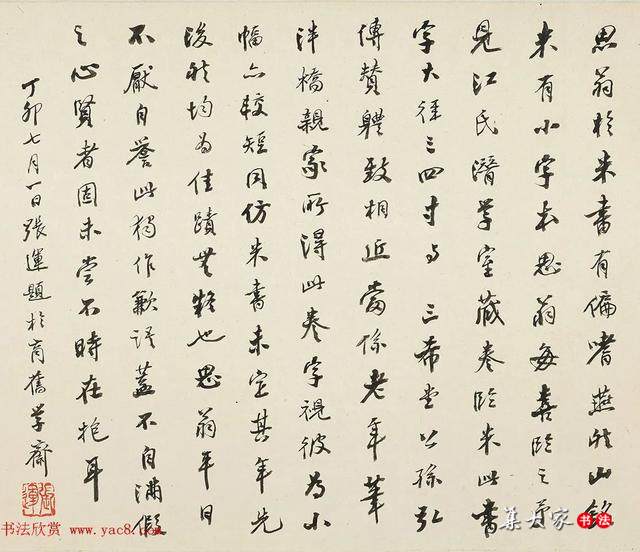 思翁於米書有偏嗜燕然山銘
米有小字本思翁每喜臨之予
見江氏潛學室藏卷臨米此書
字大徑三四寸與三希堂公孫弘
傳贊體致相近當係老年筆
泮橋親家所得此卷字視彼為小
幅亦較短同仿米書未定其年先
後然均為佳蹟無疑也思翁平日
不厭自譽此獨作歉語蓋不自滿假
之心賢者固未嘗不時在抱耳
丁卯七月一日張運題於育舊學齋
張運
书法欣赏 www.yac8.com
集大家 书法